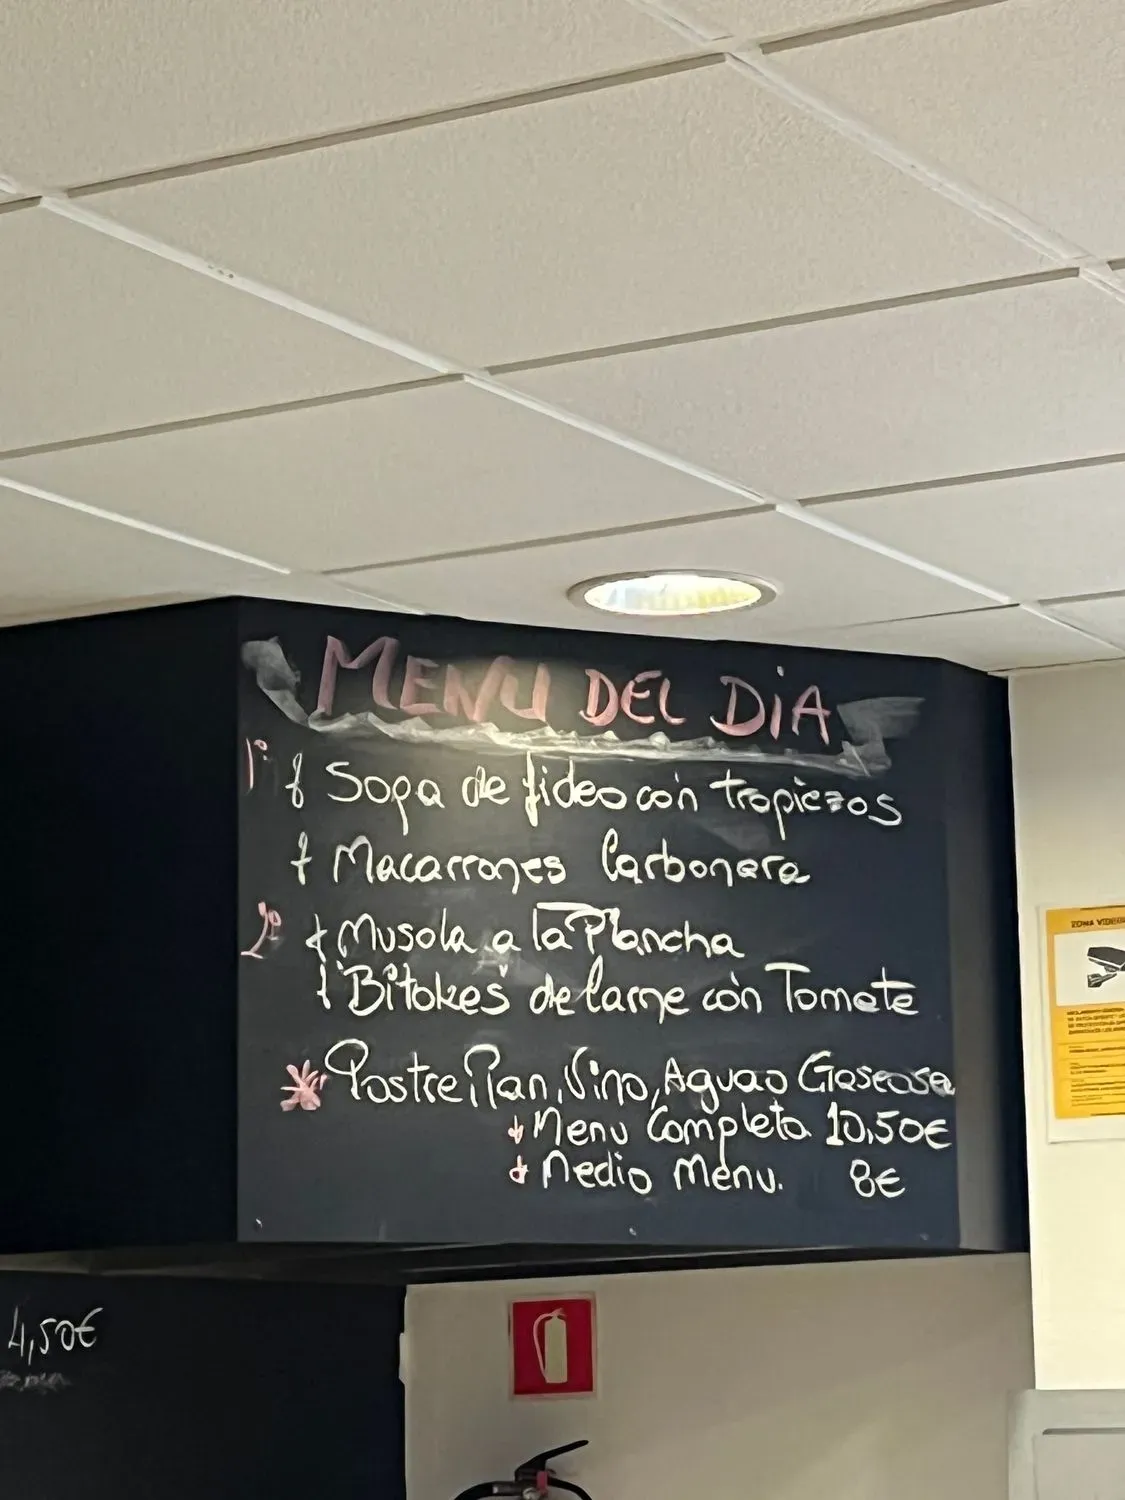 MENU DEL DiA
1º Sopa de fideo con tropiezos
Macarrones Carbonara
2º Musola a la Plancha
Bitokes de Carne con Tomate
Postre, Pan, Vino, Agua o Gaseosa
Menu Completo 10,50€
Medio Menu. 8€
4,50€
ZONA